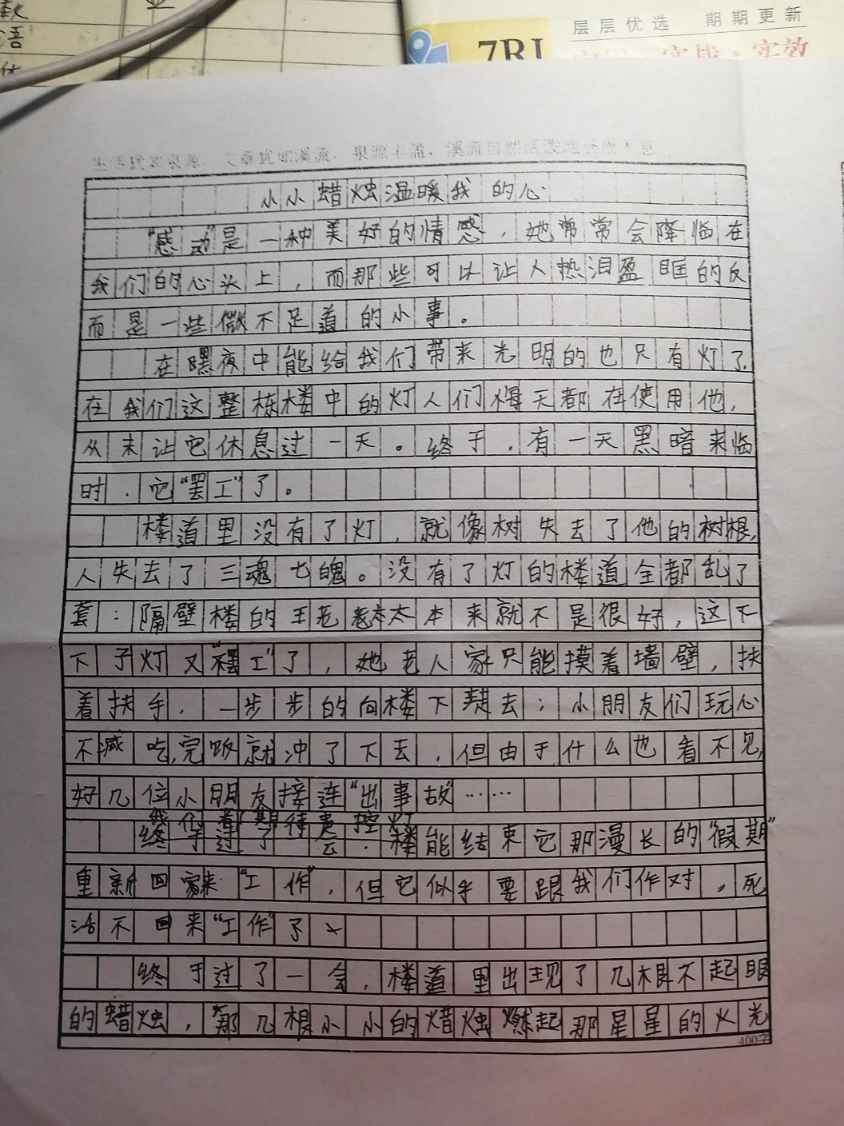 款
层层优选 期期更新
7RJ
实效
小小蜡烛温暖我的心
“感动”是一种美好的情感，她常常会降临在
我们的心头上，而那些可以让人热泪盈眶的反
而是一些微不足道的小事。
在黑夜中能给我们带来光明的也只有灯了，
在我们这整栋楼中的灯人们每天都在使用他，
从未让它休息过一天。终于，有一天黑暗来临
时，它“罢工”了。
楼道里没有了灯，就像树失去了他的树根，
人失去了三魂七魄。没有了灯的楼道全都乱了
套：隔壁楼的王老太太本来就不是很好，这下
下子灯又“罢工”了，她老人家只能摸着墙壁，扶
着扶手，一步步的向楼下走去；小朋友们玩心
不减吃完饭就冲了下去，但由于什么也看不见，
好几位小朋友接连“出事故”……
我们都期待声控灯
能结束它那漫长的“假期”
重新回来“工作”，但它似乎要跟我们作对，死
活不回来“工作”了
终于过了一会，楼道里出现了几根不起眼
的蜡烛，那几根小小的蜡烛燃起那星星的火光
400字